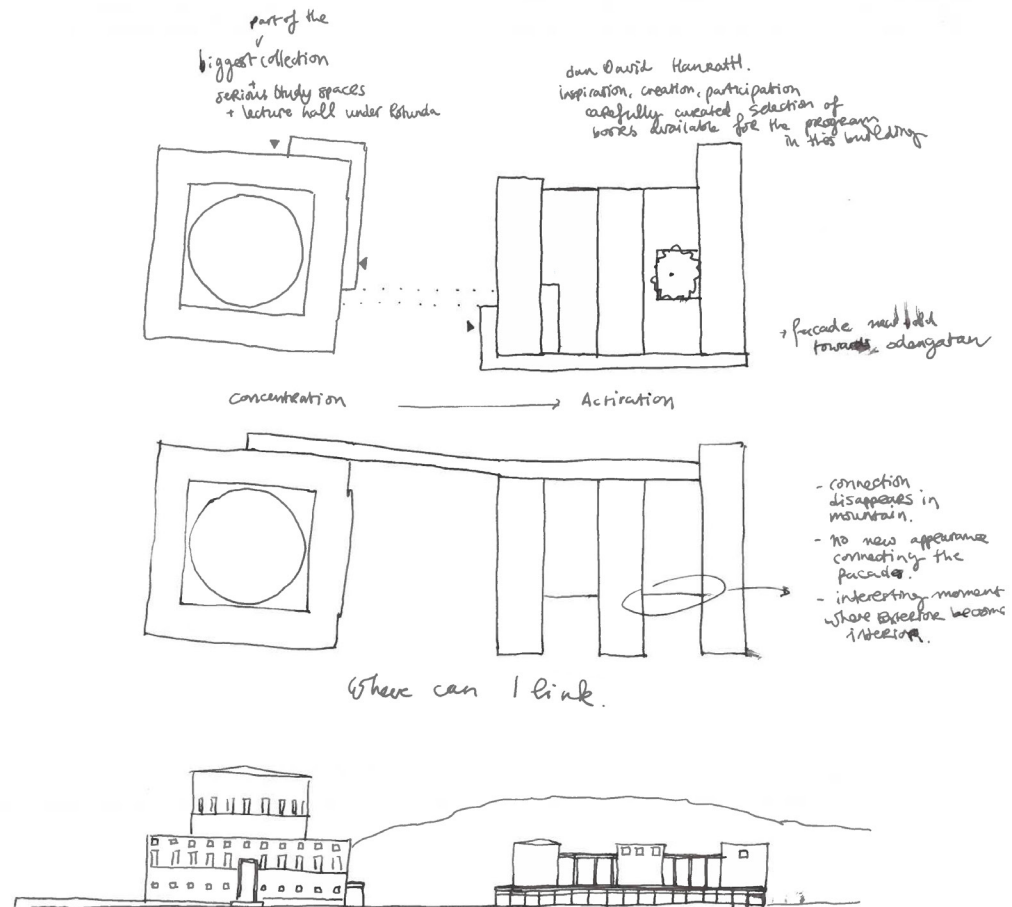 part of the
biggest collection
+
serious study spaces
+ lecture hall under Rotunda
dan David
inspiration, creation, participation
carefully curated selection of
books available for the program
in this building
+ facade
towards odengatan
concentration
Activation
- connection
disappears in
mountain.
- no new appearance
connecting the
facade.
- interesting moment
where Exterior become
interior.
Where can I link.